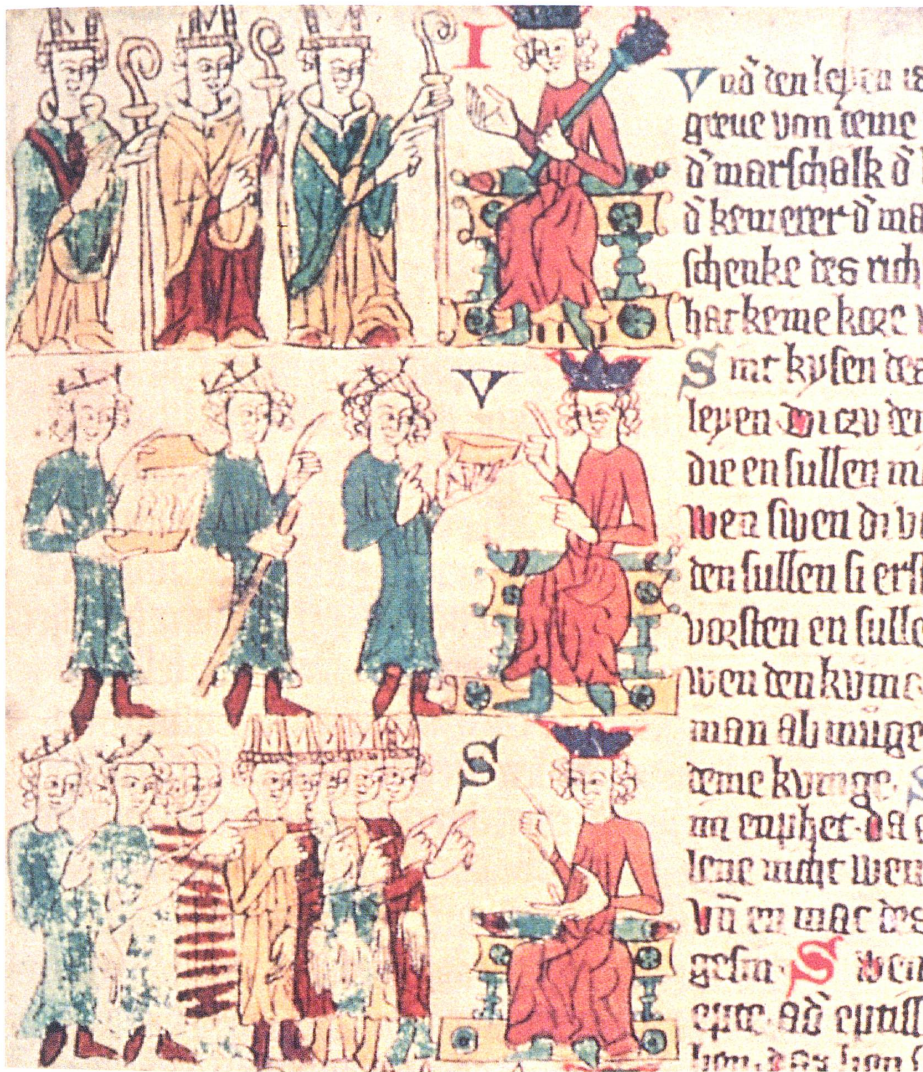 I
V
S
Vnd den leyen is
greue von deme
d̄ marschalk d̄
d̄ kemerer d̄ ma
schenke des rich
har keme kore
Sint kysen des
leyen di czu den
die en sullen
wen siven di
den sullen si erst
vorsten en sulle
wen den kvnic
man ab muge
deme kvnige
im enphet da
lene nicht wen
Vn̄ en mac des
gesin S wen
epte ad̄ eptiss